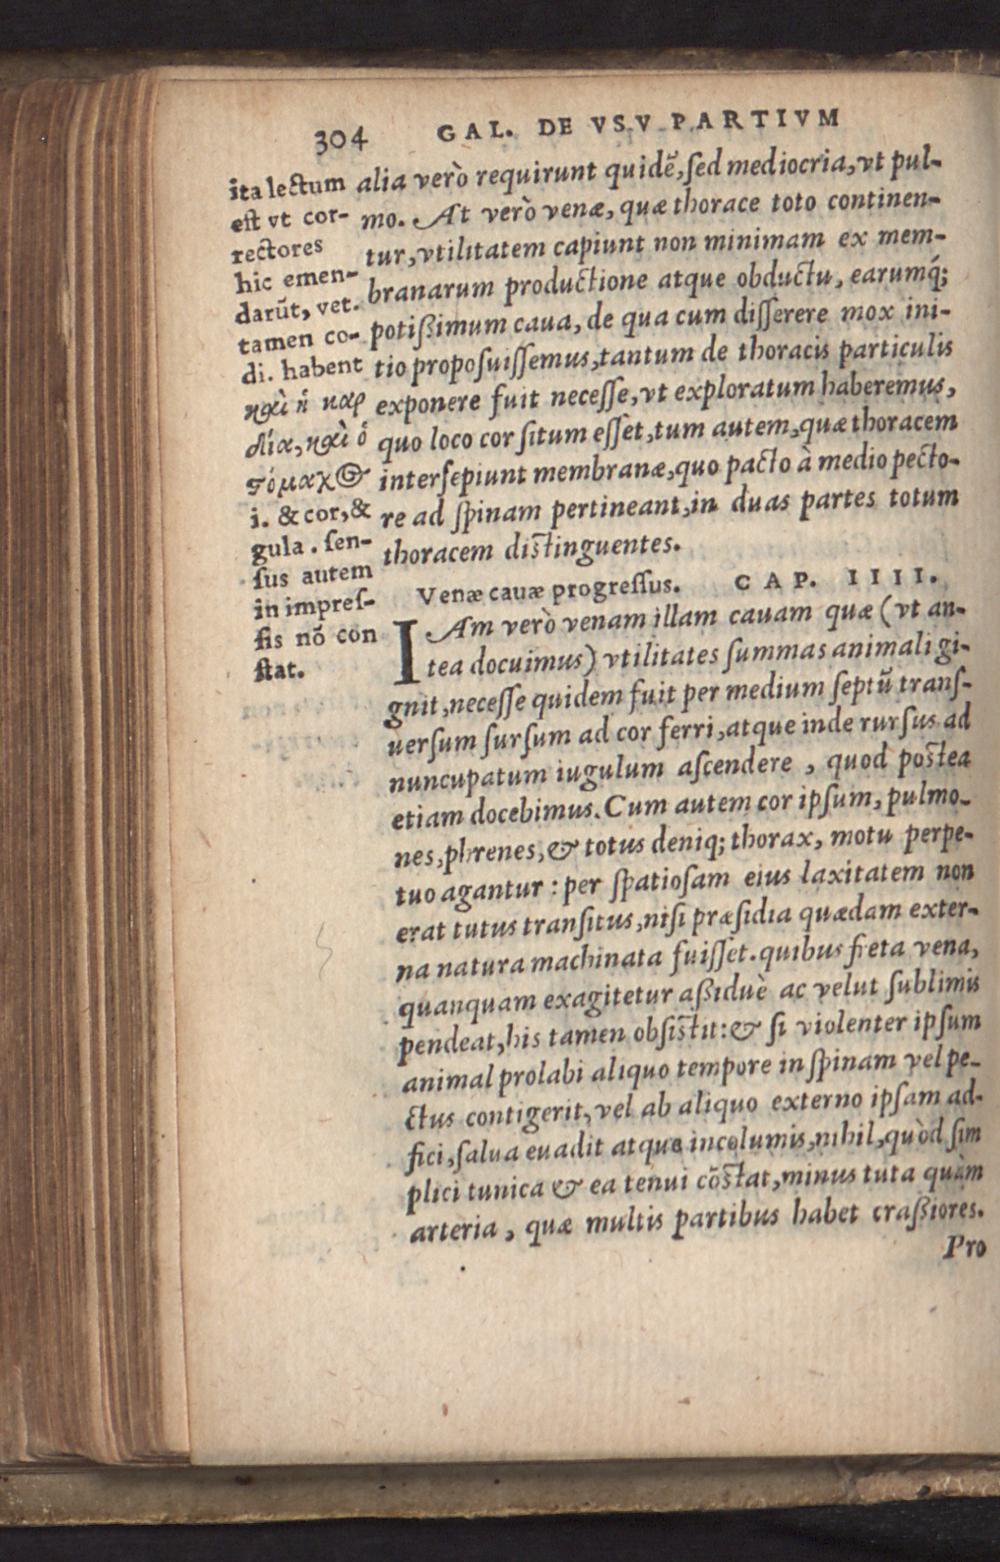 304 GAL. DE VSV PARTIVM
ita lectum
est vt cor-
rectores
hic emen-
darūt, vet.
tamen co-
di. habent
καὶ ἡ καρ
δία, καὶ ὁ
στόμαχος
i. & cor, &
gula. sen-
sus autem
in impres-
sis nō con
stat.
alia verò requirunt quidē, sed mediocria, vt pul-
mo. At verò venæ, quæ thorace toto continen-
tur, vtilitatem capiunt non minimam ex mem-
branarum productione atque obductu, earumq́;
potißimum caua, de qua cum disserere mox ini-
tio proposuissemus, tantum de thoracis particulis
exponere fuit necesse, vt exploratum haberemus,
quo loco cor situm esset, tum autem, quæ thoracem
intersepiunt membranæ, quo pacto à medio pecto-
re ad spinam pertineant, in duas partes totum
thoracem distinguentes.
Venæ cauæ progressus. CAP. IIII.
IAm verò venam illam cauam quæ (vt an-
tea docuimus) vtilitates summas animali gi-
gnit, necesse quidem fuit per medium septū trans-
uersum sursum ad cor ferri, atque inde rursus ad
nuncupatum iugulum ascendere, quod postea
etiam docebimus. Cum autem cor ipsum, pulmo-
nes, phrenes, & totus deniq; thorax, motu perpe-
tuo agantur: per spatiosam eius laxitatem non
erat tutus transitus, nisi præsidia quædam exter-
na natura machinata fuisset. quibus freta vena,
quanquam exagitetur aßiduè ac velut sublimis
pendeat, his tamen obsistit: & si violenter ipsum
animal prolabi aliquo tempore in spinam vel pe-
ctus contigerit, vel ab aliquo externo ipsam ad-
fici, salua euadit atque incolumis, nihil, quòd sim
plici tunica & ea tenui cōstat, minus tuta quàm
arteria, quæ multis partibus habet craßiores.
Pro